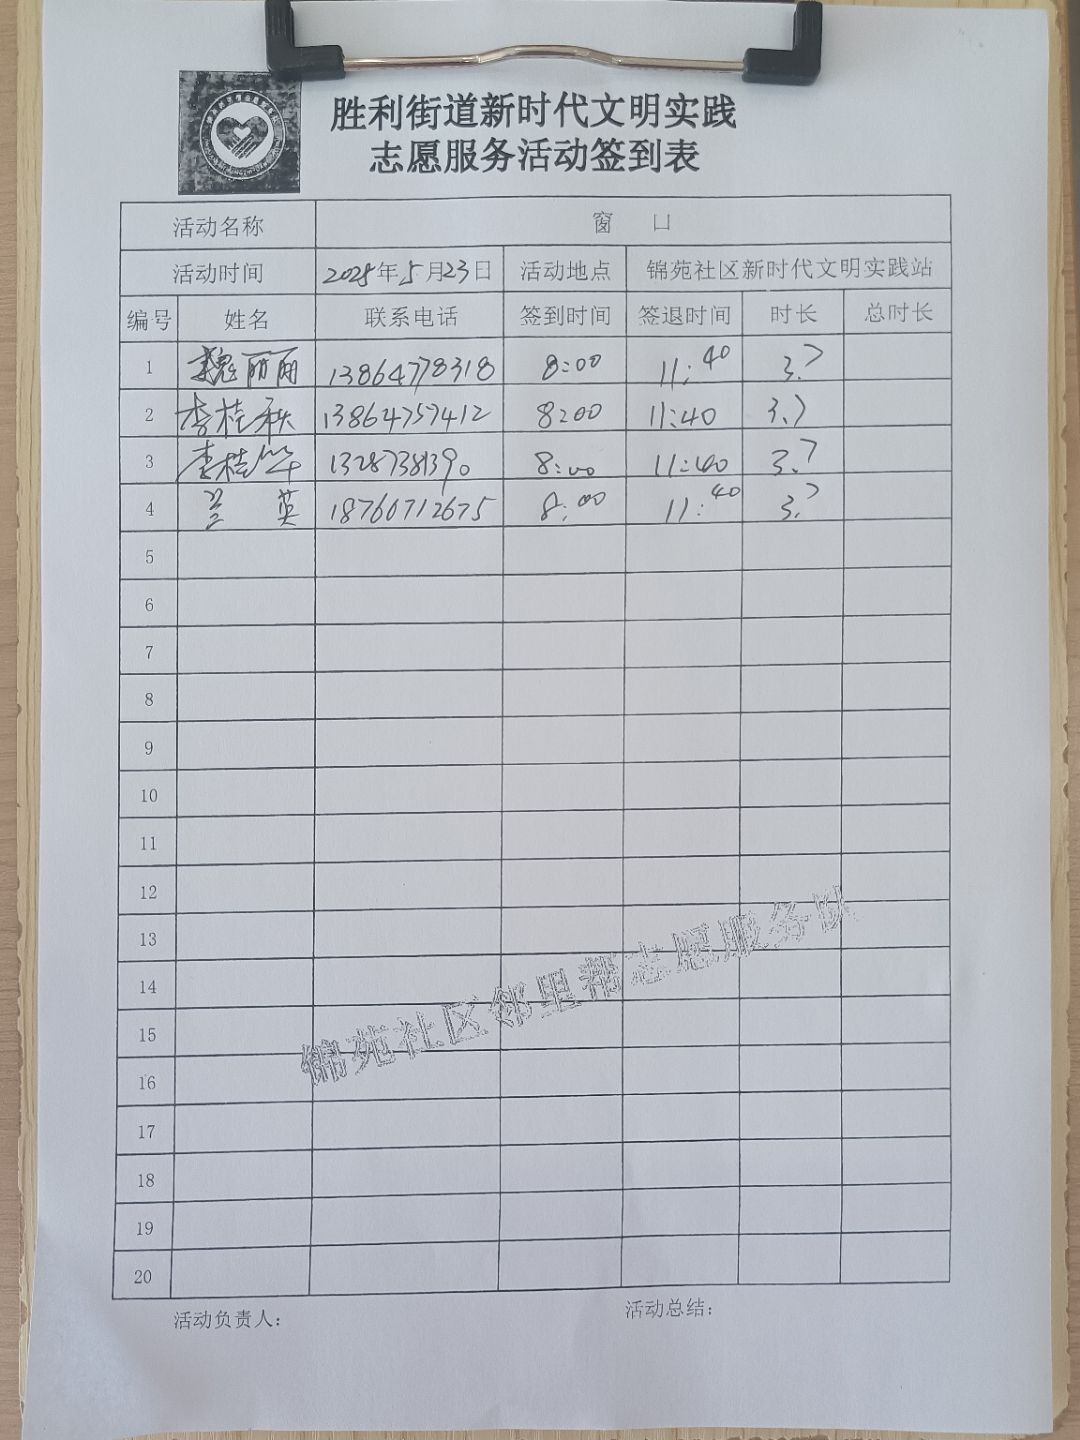 胜利街道新时代文明实践
志愿服务活动签到表
活动名称 窗 口
活动时间 2025年5月23日 活动地点 锦苑社区新时代文明实践站
编号 姓名 联系电话 签到时间 签退时间 时长 总时长
1 魏丽丽 13864778318 8:00 11:40 3.7
2 李桂秩 13864757412 8:00 11:40 3.7
3 李桂华 13287381390 8:00 11:40 3.7
4 兰 英 18760712675 8:00 11:40 3.7
5
6
7
8
9
10
11
12
13
14
15
16
17
18
19
20
锦苑社区邻里帮志愿服务队
活动负责人： 活动总结：